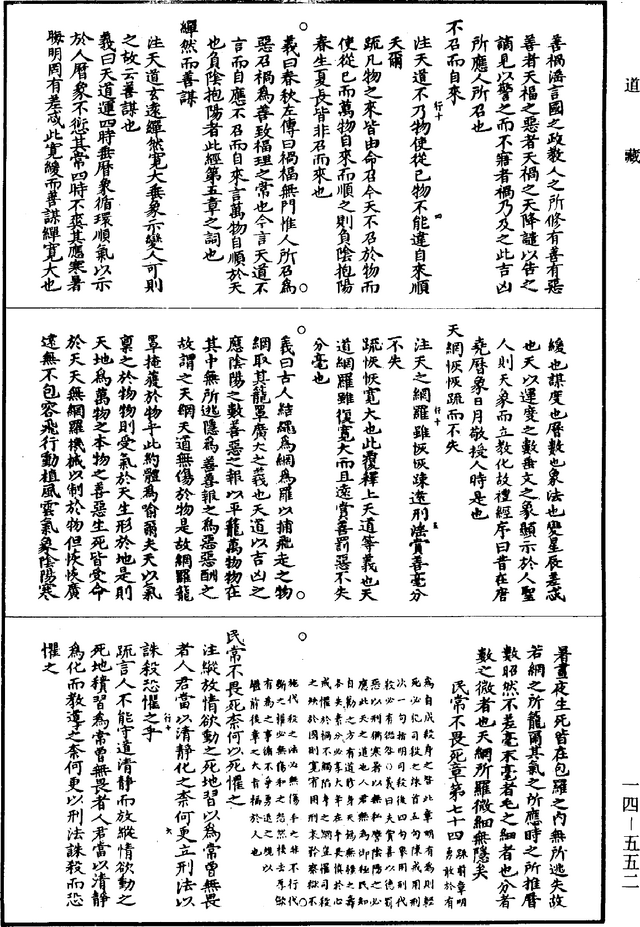 道藏
善禍淫言國之政教人之所修有善有惡
善者天福之惡者天禍之天降譴以告之
謫見以警之而不寤者禍乃及之此吉凶
所應人所召也
不召而自來
注天道不乃物使從己物不能違自來順
天爾
疏凡物之來皆由命召今天不召於物而
使從已而萬物自來而順之則負陰抱陽
春生夏長皆非召而來也
義曰春秋左傳曰禍福無門惟人所召為
惡召禍為善致福理之常也今言天道不
言而自應不召而自來言萬物自順於天
也負陰抱陽者此經第五章之詞也
繟然而善謀
注天道玄遠繟然寬大垂象示變人可則
之故云善謀也
義曰天道運四時垂曆象循環順氣以示
於人曆象不愆其常四時不爽其應寒暑
晦明罔有差忒此寬緩而善謀繟寬大也
緩也謀度也曆數也象法也變星辰差忒
也天以運度之數垂文之象顯示於人聖
人則天象而立教化故禮經序曰昔在唐
堯曆象日月敬授人時是也
天網恢恢疏而不失
注天之網羅雖恢恢疎遠刑法賞善毫分
不失
疏恢恢寬大也此覆釋上天道等義也天
道網羅雖復寬大而且遠賞善罰惡不失
分毫也
義曰古人結繩為網為羅以捕飛走之物
網取其籠罩廣大之義也天道以吉凶之
應陰陽之數善惡之報以平籠萬物物在
其中無所逃隱為善善報之為惡惡酬之
故謂之天網天道無傷於物是故網羅籠
罩掩覆於物乎此約體為喻爾夫天以氣
稟之於物物則受氣於天生形於地是則
天地為萬物之本物之善惡生死皆受命
於天天無網羅機械以制於物但恢恢廣
遠無不包容飛行動植風雲氣象陰陽寒
暑晝夜生死皆在包羅之內無所逃失故
若網之所籠爾其氣之所應時之所推曆
數昭然不差毫末毫者毛之細者也分者
數之微者也天網所羅微細無隱矣
民常不畏死章第七十四
民常不畏死柰何以死懼之
注縱放情欲動之死地習以為常曾無畏
者人君當以清靜化之柰何更立刑法以
誅殺恐懼之乎
疏言人不能守道清靜而放縱情欲動之
死地積習為常曾無畏者人君當以清靜
為化而教導之柰何更以刑法誅殺而恐
懼之
一四－五五二